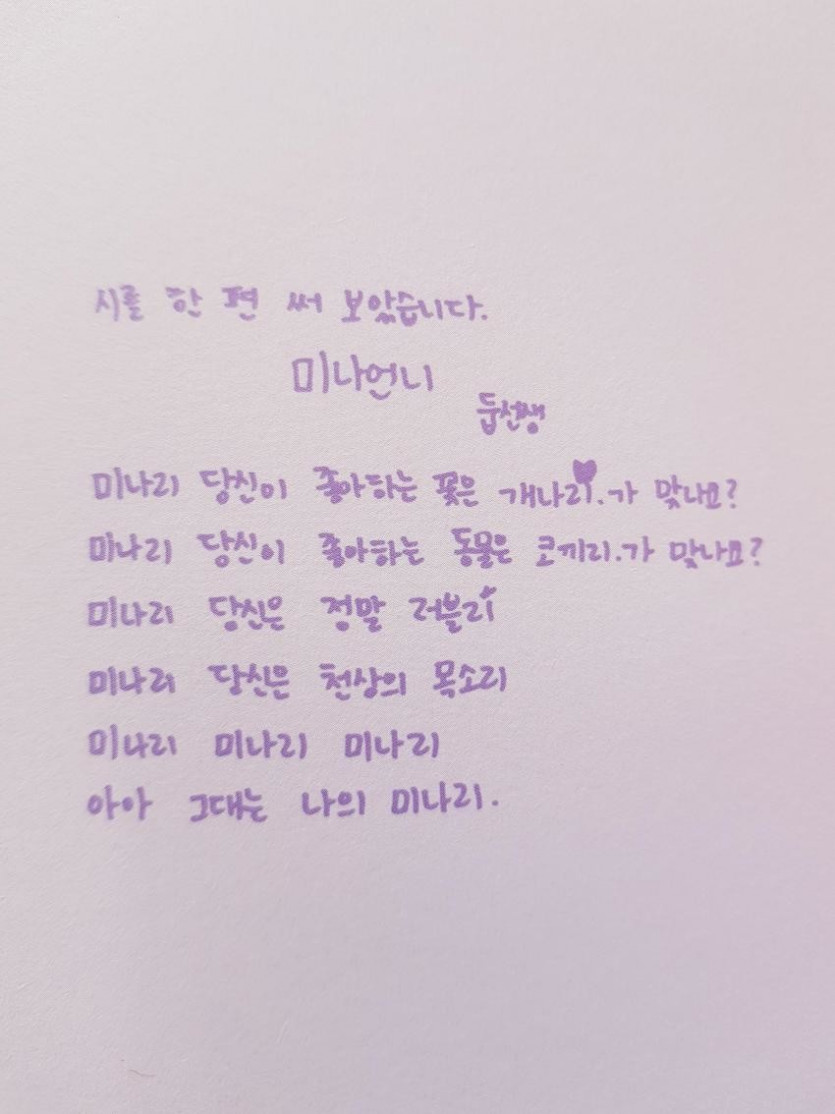 시를 한 편 써 보았습니다.
미나언니
둡선생
미나리 당신이 좋아하는 꽃은 개나리.가 맞나요?
미나리 당신이 좋아하는 동물은 코끼리.가 맞나요?
미나리 당신은 정말 러블리
미나리 당신은 천상의 목소리
미나리 미나리 미나리
아아 그대는 나의 미나리.